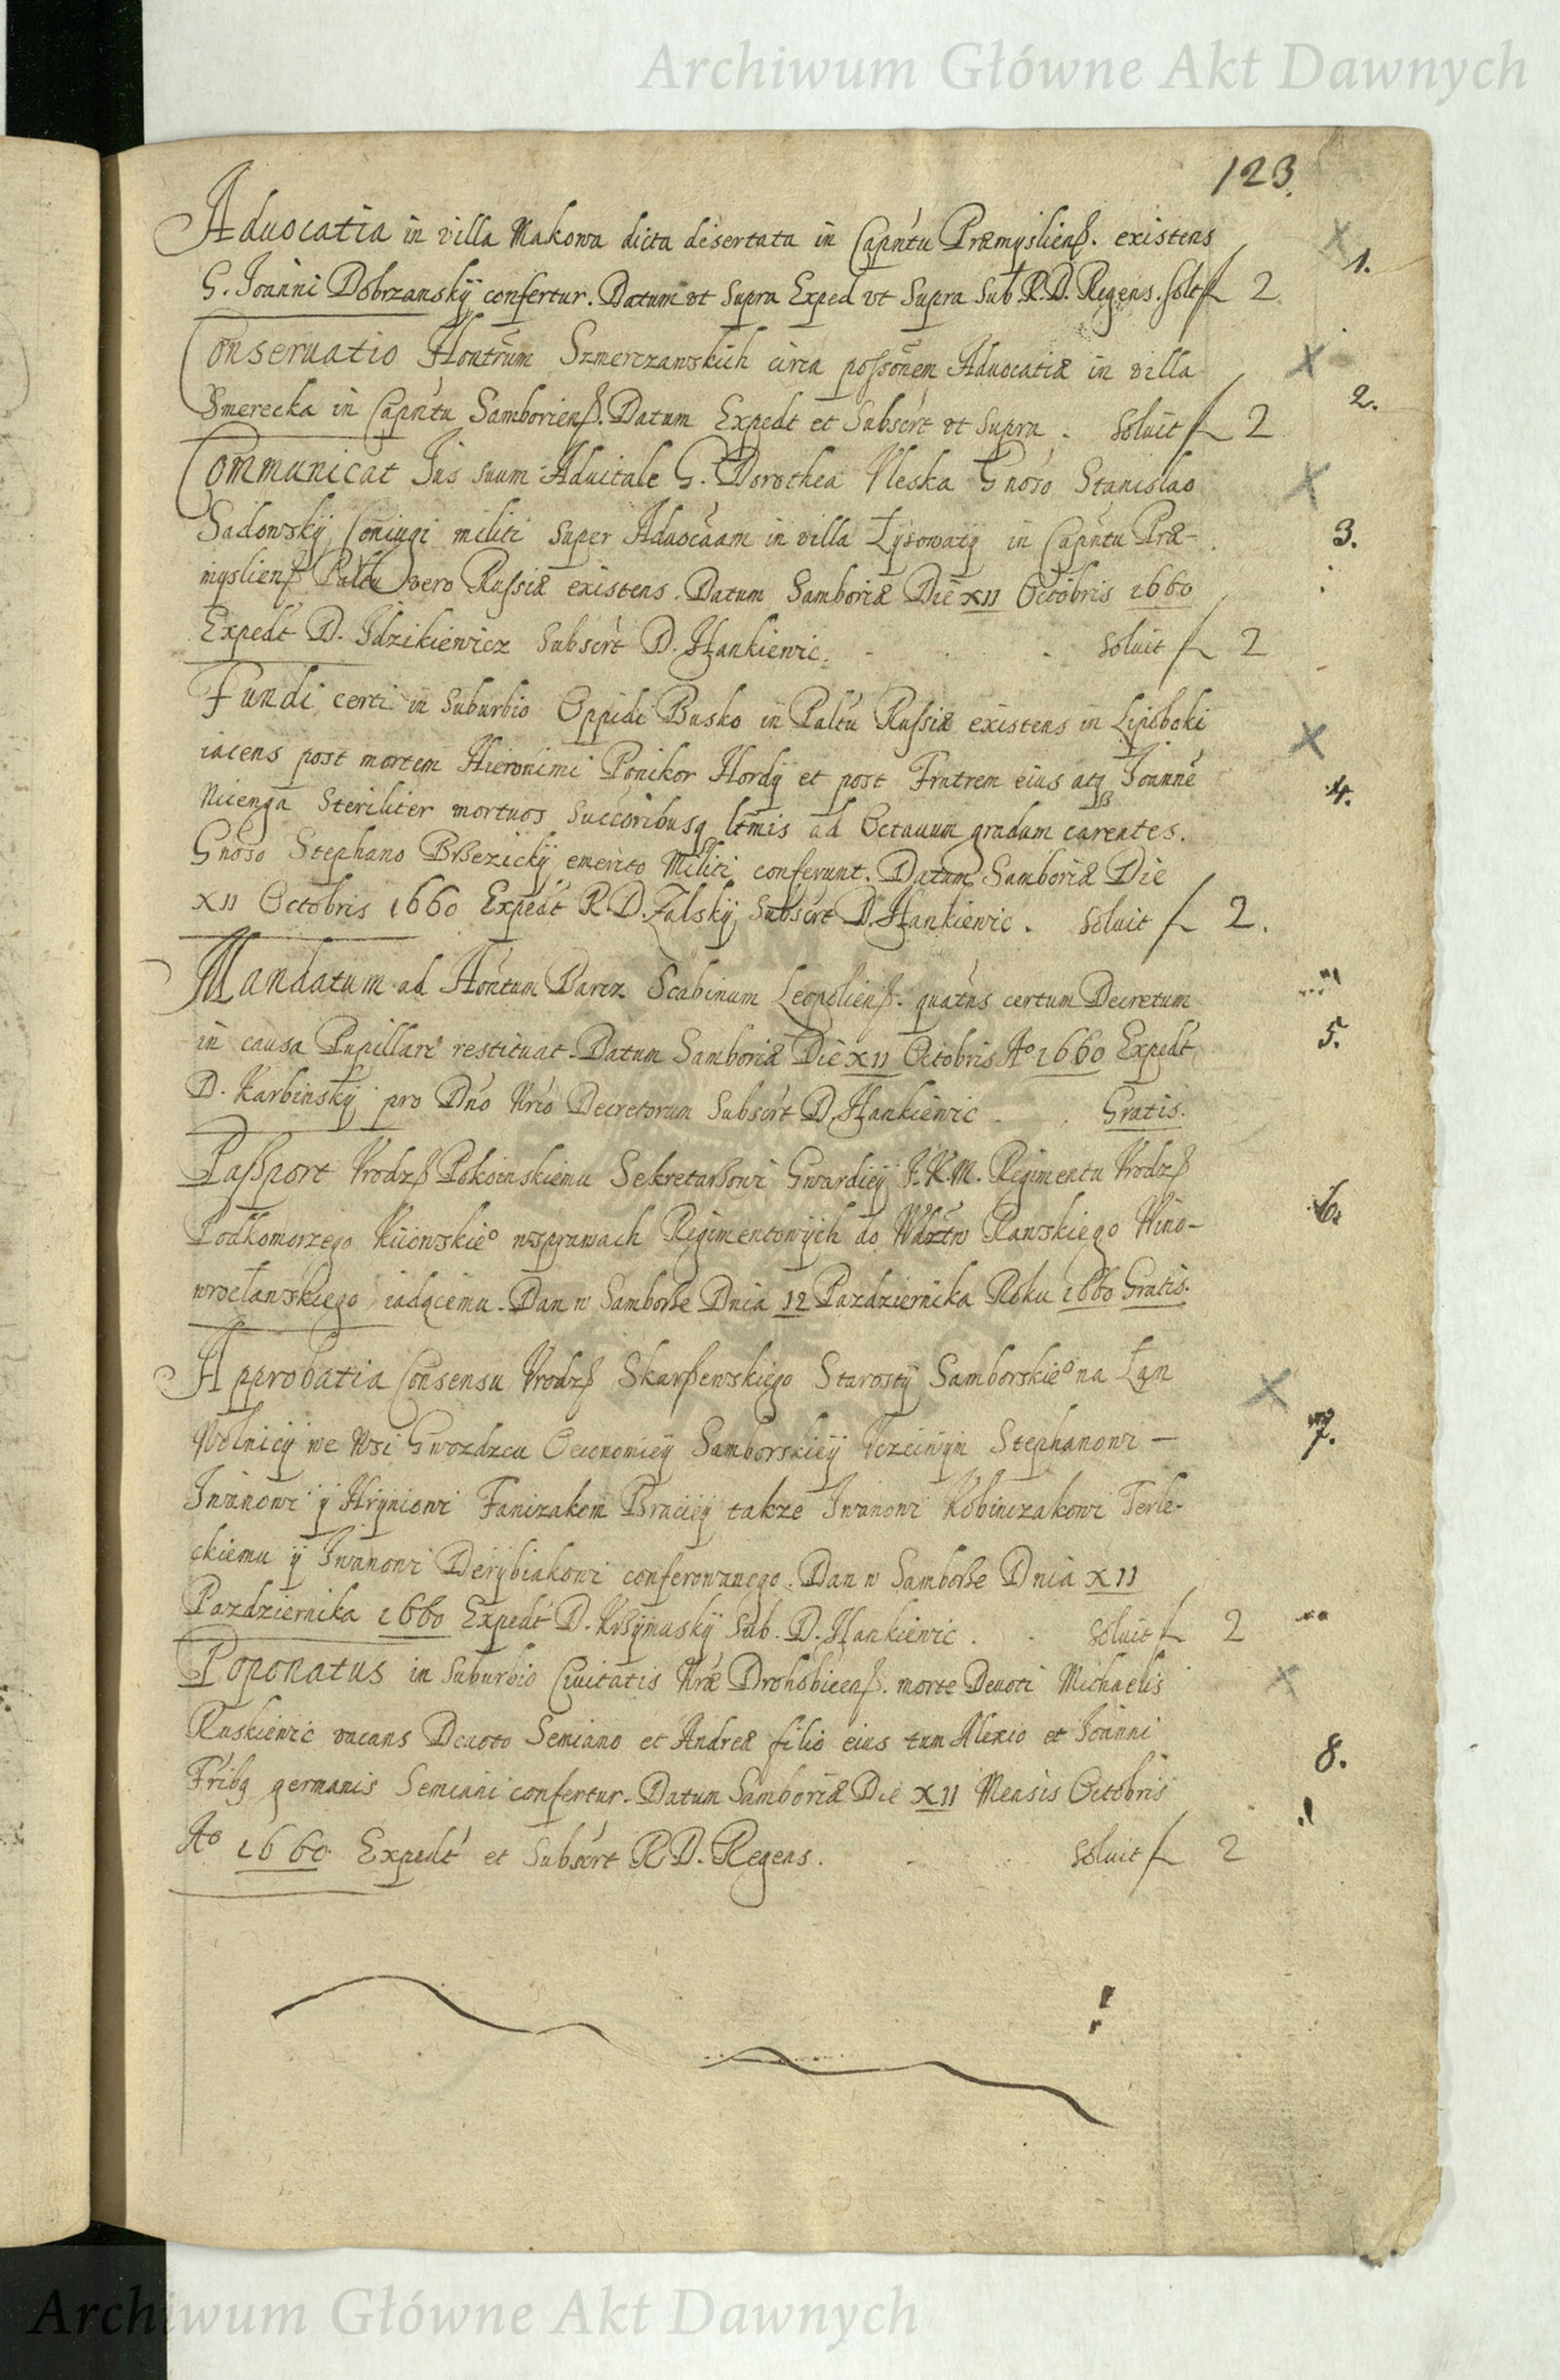 Archiwum Główne Akt Dawnych
123.
Aduocatia in villa Makowa dicta desertata in Capnťu Præmysliens. existens
1.
G. Joanni Dobrzanskÿ confertur. Datum vt Supra Exped vt Supra Sub. R. D. Regens. solt f 2
Conseruatio Hontrum Szmerczanskich circa possonem Aduocatiæ in villa
2.
Smerecka in Capntu Samboriens. Datum Expedt et Subscrt vt Supra. soluit f 2
Communicat Jus suum Aduitale G. Dorothea Vleska Gnoso Stanislao
Sadowskÿ Coniugi militi super Aduocaam in villa Łysowaty in Capntu Præ-
3.
mysliens Paltu vero Russiæ existens. Datum Samboriæ Die XII Octobris 1660
Expedt D. Idzikiewicz Subscrt D. Hankiewic. soluit f 2
Fundi certi in Suburbio Oppidi Busko in Paltu Russiæ existens in Lipoboki
iacens post mortem Hieronimi Ponikor Hordÿ et post Fratrem eius atq Joanne
4.
Nicenga Steriliter mortuos Succoribusq ltmis ad Octauum gradum carentes.
Gnoso Stephano Brzezickÿ emerito Militi conferunt. Datum Samboriæ Die
XII Octobris 1660 Expedt R. D. Zalskÿ Subscrt D. Hankiewic. soluit f 2.
Mandatum ad Hontum Parcz Scabinum Leopoliens. quatns certum Decretum
5.
in causa Pupillari restituat. Datum Samboriæ Die XII Octobris Ao 1660 Expedt
D. Karbinskÿ pro Dno Nrio Decretorum Subscrt D. Hankiewic. Gratis.
Passport Vrodz Pokoinskiemu Sekretarzowi Gwardiey J. K. M. Regimentu Vrodz
6.
Podkomorzego Kiiowskieo w sprawach Regimentowych do Wdztw Rawskiego Wino-
wrocławskiego iadącemu. Dan w Samborze Dnia 12 Pazdziernika Roku 1660 Gratis.
Approbatia Consensu Vrodz Skarszewskiego Starosty Samborskieo na Łan
7.
Wolnicy we Wsi Gwozdzcu Oeconomiey Samborskiey Vczciwym Stephanowi —
Iwanowi y Hryniowi Fanizakom Braciey takze Iwanowi Kobinczakowi Terle-
ckiemu y Iwanowi Derybiakowi conferowanego. Dan w Samborze Dnia XII
Pazdziernika 1660 Expedt D. Krzymuskÿ Sub. D. Hankiewic. soluit f 2
Poponatus in Suburbio Ciuitatis Nræ Drohobicens. morte Deuoti Michaelis
Ruskiewic vacans Deuoto Semiano et Andreæ filio eius tum Alexio et Joanni
8.
Fribq germanis Semiani confertur. Datum Samboriæ Die XII Mensis Octobris
Ao 1660. Expedt et Subscrt R D. Regens. soluit f 2
Archiwum Główne Akt Dawnych